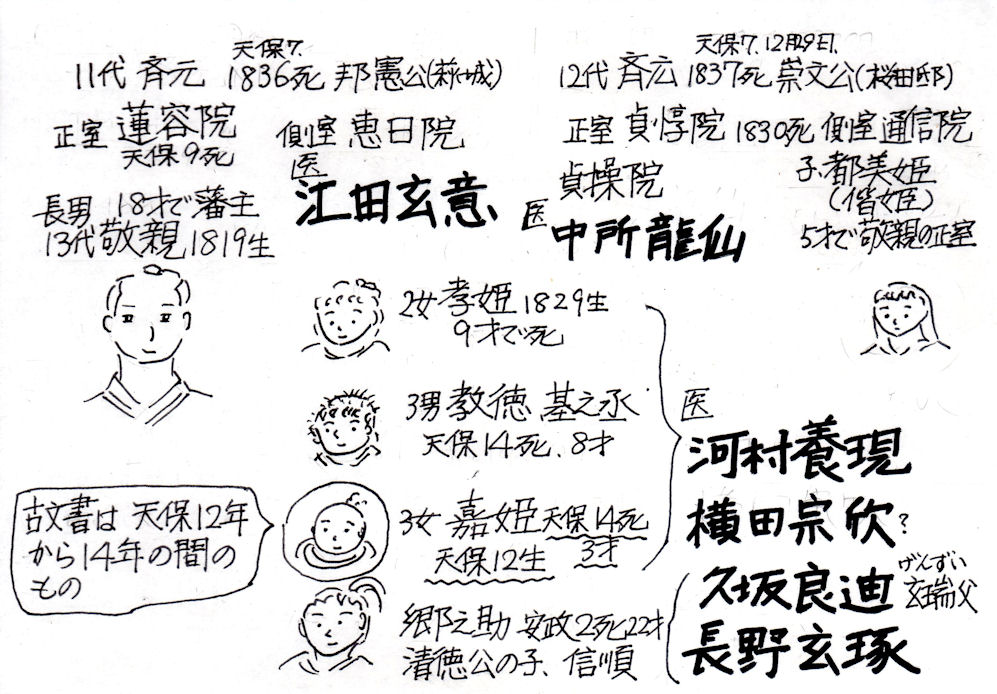 天保7.
11代 斉元 1836死 邦憲公(萩城)
正室 蓮容院 側室 恵日院
天保9死
医
江田玄意
長男 18才で藩主
13代敬親 1819生
天保7.12月29日.
12代 斉広 1837死 崇文公(桜田邸)
正室 貞惇院 1830死 側室 通信院
貞操院
子.都美姫
(偕姫)
5才で敬親の正室
医 中所龍仙
2女 孝姫 1829生
9才で死
3男 教徳 基之丞
天保14死. 8才
3女 嘉姫 天保14死
天保12生 3才
郷之助 安政2死22才
清徳公の子、信順
古文書は 天保12年
から14年の間の
もの
医
河村養現
横田宗欣?
げんずい
久坂良迪 玄瑞父
長野玄琢